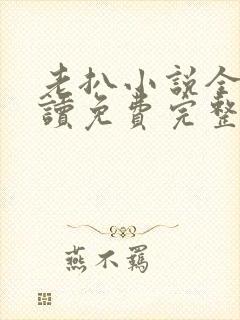 老扒小説全
讀免費完整
燕不羁